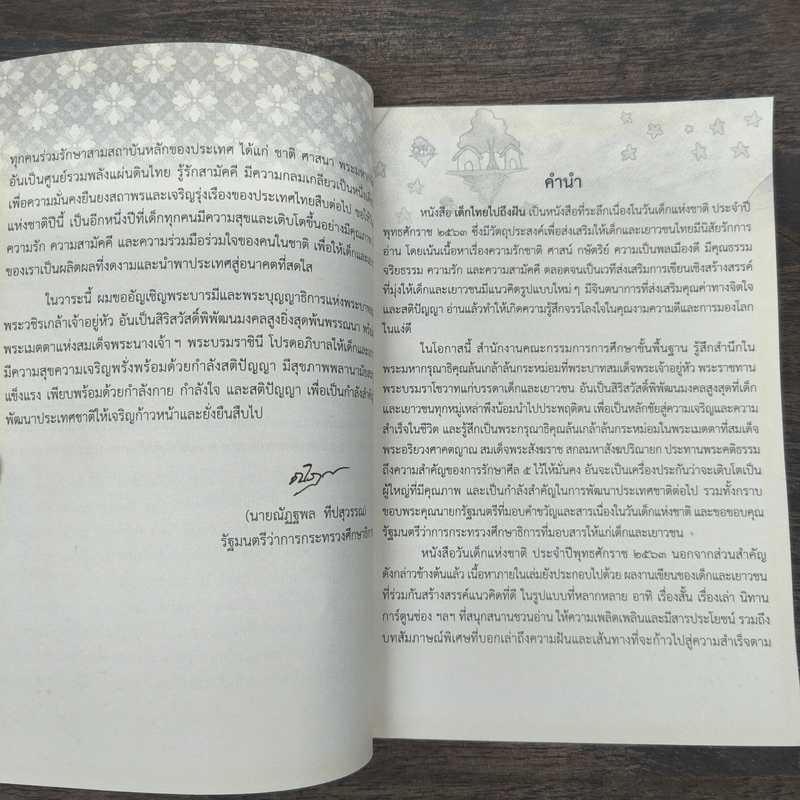 ทุกคนร่วมรักษาสามสถาบันหลักของประเทศ ได้แก่ ชาติ ศาสนา
อันเป็นศูนย์รวมพลังแผ่นดินไทย รู้รักสามัคคี มีความกลมเกลียวเป็นหนึ่ง
เพื่อความมั่นคงยืนยงสถาพรและเจริญรุ่งเรืองของประเทศไทยสืบต่อไป
แห่งชาติปีนี้ เป็นอีกหนึ่งปีที่เด็กทุกคนมีความสุขและเติบโตขึ้นอย่างมีคุณภาพ
ความรัก ความสามัคคี และความร่วมมือร่วมใจของคนในชาติ เพื่อให้เด็ก
ของเราเป็นผลิตผลที่งดงามและนำพาประเทศสู่อนาคตที่สดใส
ในวาระนี้ ผมขออัญเชิญพระบารมีและพระบุญญาธิการแห่ง
พระวชิรเกล้าเจ้าอยู่หัว อันเป็นสิริสวัสดิ์พิพัฒนมงคลสูงยิ่งสุดพ้นพรรณนา
พระเมตตาแห่งสมเด็จพระนางเจ้า ฯ พระบรมราชินี โปรดอภิบาลให้เด็ก
มีความสุขความเจริญพรั่งพร้อมด้วยกำลังสติปัญญา มีสุขภาพพลานามัย
แข็งแรง เพียบพร้อมด้วยกำลังกาย กำลังใจ และสติปัญญา เพื่อเป็นกำลังสำคัญ
พัฒนาประเทศชาติให้เจริญก้าวหน้าและยั่งยืนสืบไป
(นายณัฏฐพล ทีปสุวรรณ)
รัฐมนตรีว่าการกระทรวงศึกษาธิการ
คำนำ
หนังสือ เด็กไทยไปถึงฝัน เป็นหนังสือที่ระลึกเนื่องในวันเด็กแห่งชาติ ประจำปี
พุทธศักราช ๒๕๖๓ ซึ่งมีวัตถุประสงค์เพื่อส่งเสริมให้เด็กและเยาวชนไทยมีนิสัยรักการ
อ่าน โดยเน้นเนื้อหาเรื่องความรักชาติ ศาสน์ กษัตริย์ ความเป็นพลเมืองดี มีคุณธรรม
จริยธรรม ความรัก และความสามัคคี ตลอดจนเป็นเวทีส่งเสริมการเขียนเชิงสร้างสรรค์
ที่มุ่งให้เด็กและเยาวชนมีแนวคิดรูปแบบใหม่ ๆ มีจินตนาการที่ส่งเสริมคุณค่าทางจิตใจ
และสติปัญญา อ่านแล้วทำให้เกิดความรู้สึกจรรโลงใจในคุณงามความดีและการมองโลก
ในแง่ดี
ในโอกาสนี้ สำนักงานคณะกรรมการการศึกษาขั้นพื้นฐาน รู้สึกสำนึกใน
พระมหากรุณาธิคุณล้นเกล้าล้นกระหม่อมที่พระบาทสมเด็จพระเจ้าอยู่หัว พระราชทาน
พระบรมราโชวาทแก่บรรดาเด็กและเยาวชน อันเป็นสิริสวัสดิ์พิพัฒนมงคลสูงสุดที่เด็ก
และเยาวชนทุกหมู่เหล่าพึงน้อมนำไปประพฤติตน เพื่อเป็นหลักชัยสู่ความเจริญและความ
สำเร็จในชีวิต และรู้สึกเป็นพระกรุณาธิคุณล้นเกล้าล้นกระหม่อมในพระเมตตาที่สมเด็จ
พระอริยวงศาคตญาณ สมเด็จพระสังฆราช สกลมหาสังฆปริณายก ประทานพระคติธรรม
ถึงความสำคัญของการรักษาศีล ๕ ไว้ให้มั่นคง อันจะเป็นเครื่องประกันว่าจะเติบโตเป็น
ผู้ใหญ่ที่มีคุณภาพ และเป็นกำลังสำคัญในการพัฒนาประเทศชาติต่อไป รวมทั้งกราบ
ขอบพระคุณนายกรัฐมนตรีที่มอบคำขวัญและสารเนื่องในวันเด็กแห่งชาติ และขอขอบคุณ
รัฐมนตรีว่าการกระทรวงศึกษาธิการที่มอบสารให้แก่เด็กและเยาวชน
หนังสือวันเด็กแห่งชาติ ประจำปีพุทธศักราช ๒๕๖๓ นอกจากส่วนสำคัญ
ดังกล่าวข้างต้นแล้ว เนื้อหาภายในเล่มยังประกอบไปด้วย ผลงานเขียนของเด็กและเยาวชน
ที่ร่วมกันสร้างสรรค์แนวคิดที่ดี ในรูปแบบที่หลากหลาย อาทิ เรื่องสั้น เรื่องเล่า นิทาน
การ์ตูนช่อง ฯลฯ ที่สนุกสนานชวนอ่าน ให้ความเพลิดเพลินและมีสารประโยชน์ รวมถึง
บทสัมภาษณ์พิเศษที่บอกเล่าถึงความฝันและเส้นทางที่จะก้าวไปสู่ความสำเร็จตาม